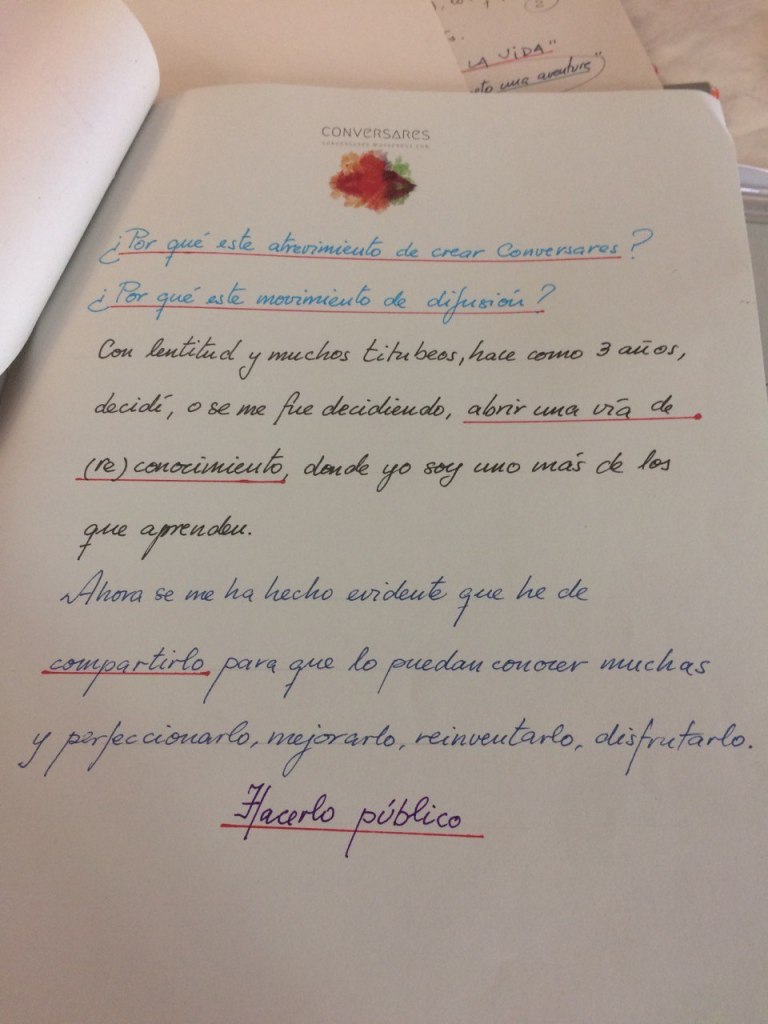 LA VIDA"
una aventura"
CONVERSARES
¿Por qué este atrevimiento de crear Conversares?
¿Por qué este movimiento de difusión?
Con lentitud y muchos titubeos, hace como 3 años,
decidí, o se me fue decidiendo, abrir una vía de
(re)conocimiento, donde yo soy uno más de los
que aprenden.
Ahora se me ha hecho evidente que he de
compartirlo para que lo puedan conocer muchas
y perfeccionarlo, mejorarlo, reinventarlo, disfrutarlo.
Hacerlo público